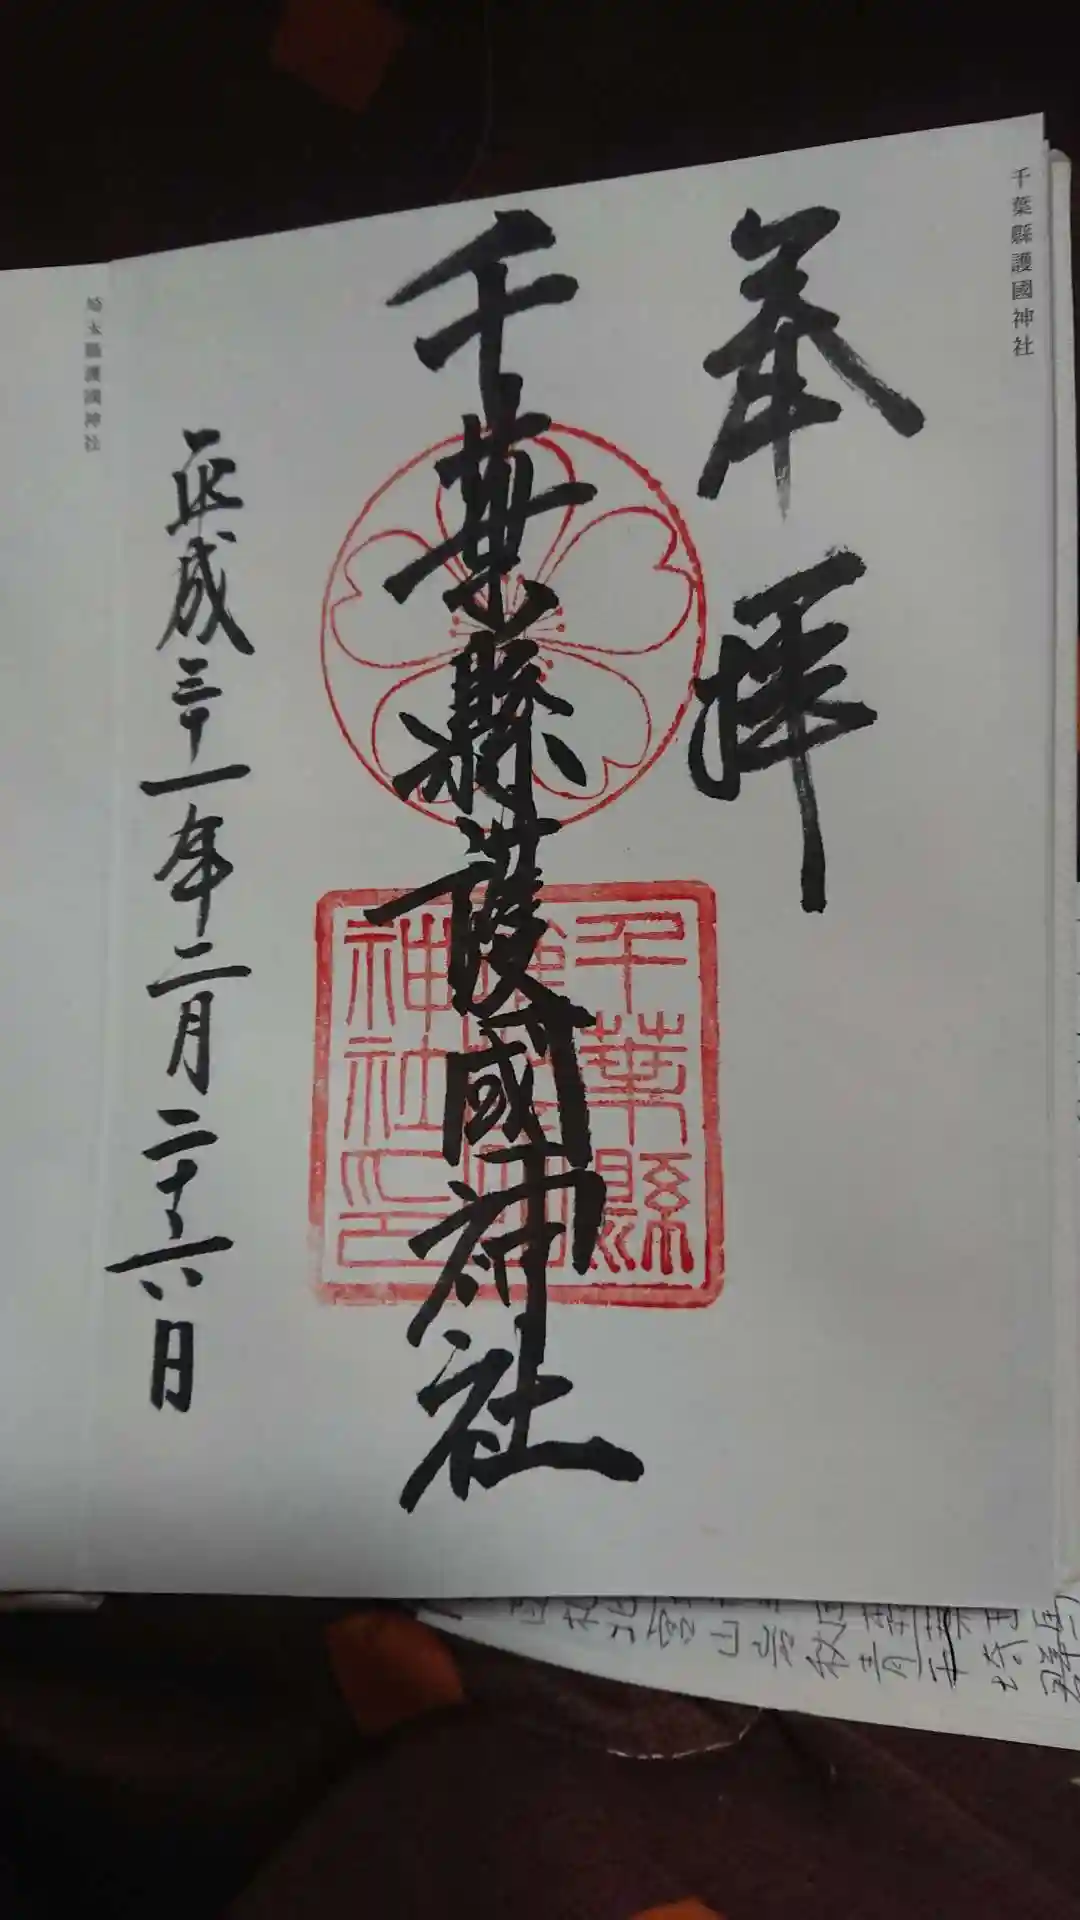 千葉縣護國神社
奉拝
千葉縣護國神社
千葉縣
神社印
平成三十一年二月二十六日
埼玉縣護國神社